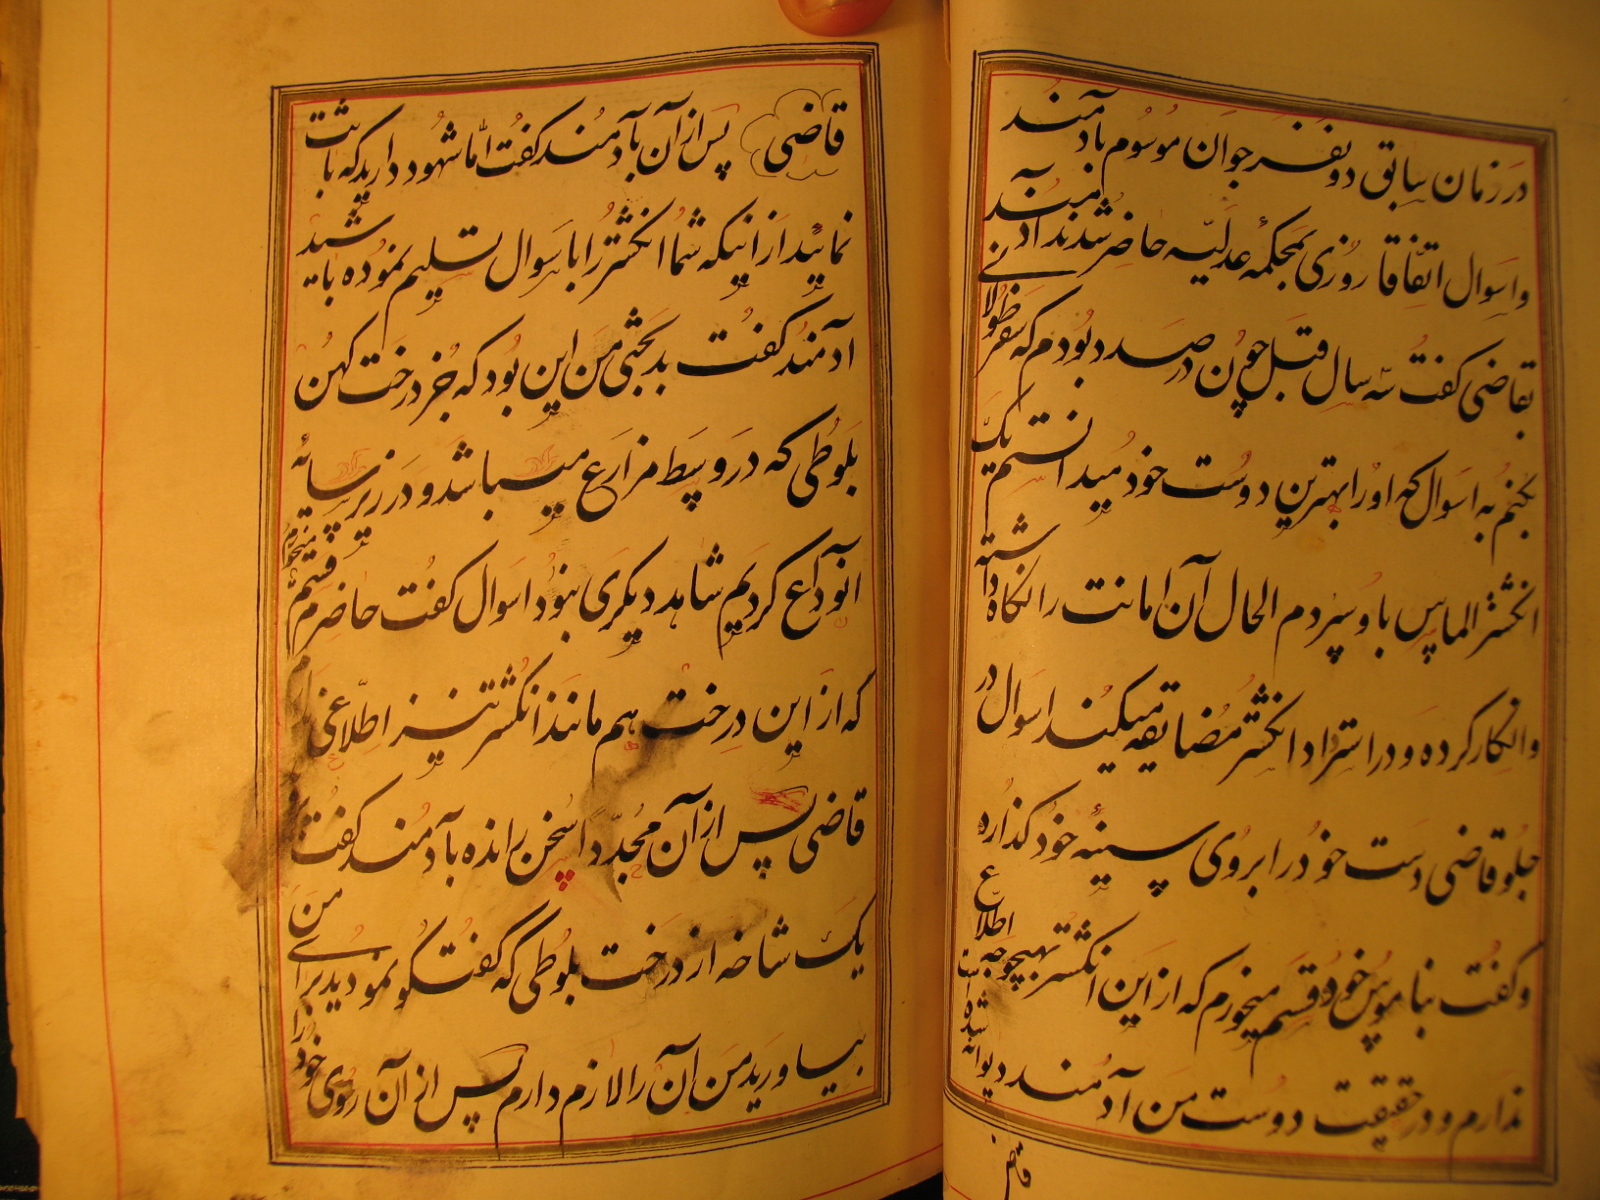 در زمان سابق دو نفر جوان موسوم بادمند
واسوال اتفاقا روزی بمحکمهٔ عدلیه حاضر شدند ادمند
بقاضی گفت سه سال قبل چون در صدد بودم که سفر طولانی
بکنم به اسوال که او را بهترین دوست خود میدانستم یک
انگشتر الماس باو سپردم الحال آن امانت را نگاه داشته
وانکار کرده و در استرداد انگشتر مضایقه میکند اسوال در
جلو قاضی دست خود را بروی سینهٔ خود گذارده
و گفت بناموس خود قسم میخورم که از این انگشتر بهیچوجه اطلاع
ندارم و در حقیقت دوست من آدمند دیوانه شده است
قاضی
قاضی پس از آن بآدمند گفت اما شهود دارید که باثبات
نمائید از اینکه شما انگشتر را باسوال تسلیم نموده باشید
ادمند گفت بدبختی من این بود که جز درخت کهن
بلوطی که در وسط مزارع میباشد و در زیر سایهٔ
انوداع کردیم شاهد دیگری نبود اسوال گفت حاضرم قسم میخورم
که از این درخت هم مانند انگشتر نیز اطلاعی ندارم
قاضی پس از آن مجددا سخن رانده بآدمند گفت
یک شاخه از درخت بلوطی که گفتگو نمودید برای من
بیاورید من آن را لازم دارم پس از آن روی خود را